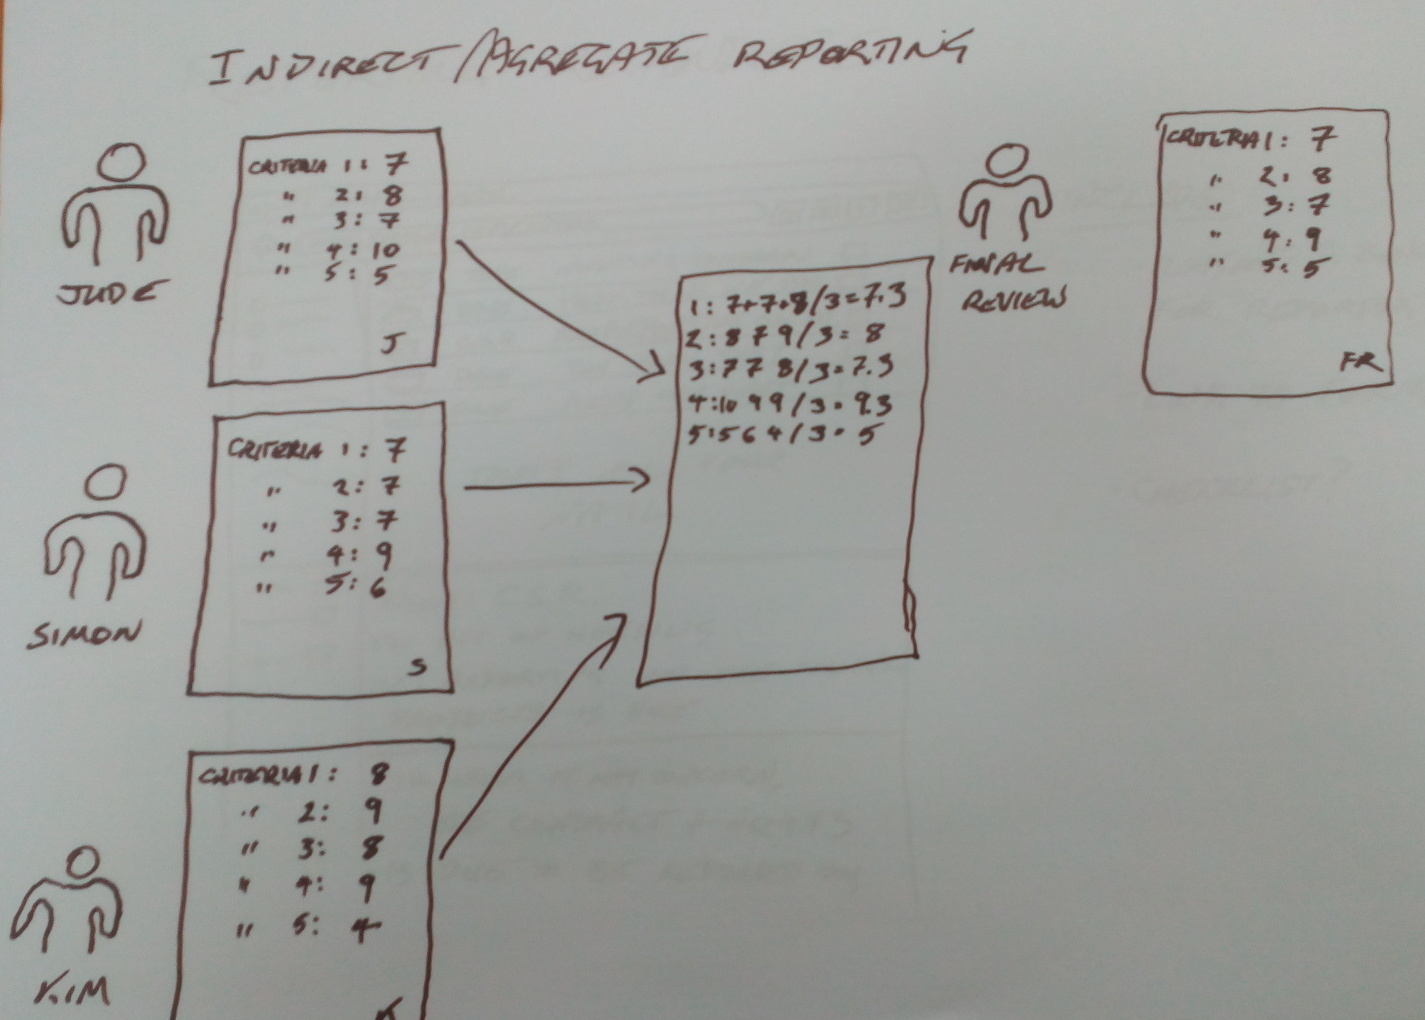 INDIRECT/AGREGATE REPORTING
JUDE
CRITERIA 1: 7
" 2: 8
" 3: 7
" 4: 10
" 5: 5
J
SIMON
CRITERIA 1: 7
" 2: 7
" 3: 7
" 4: 9
" 5: 6
S
KIM
CRITERIA 1: 8
" 2: 9
" 3: 8
" 4: 9
" 5: 4
K
1: 7+7+8/3=7.3
2: 8 7 9/3= 8
3: 7 7 8/3=7.3
4: 10 9 9/3= 9.3
5: 5 6 4/3= 5
FINAL
REVIEW
CRITERIA 1: 7
" 2: 8
" 3: 7
" 4: 9
" 5: 5
FR
CHECKLIST?